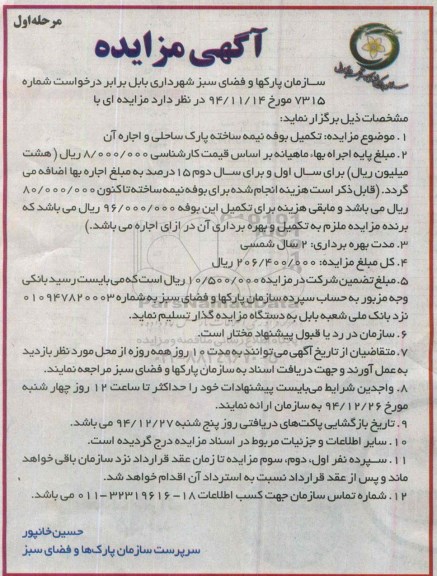 مرحله اول
آگهی مزایده
سازمان پارکها و فضای سبز شهرداری بابل برابر درخواست شماره
۷۳۱۵ مورخ ۹۴/۱۱/۱۴ در نظر دارد مزایده ای با
مشخصات ذیل برگزار نماید:
۱. موضوع مزایده: تکمیل بوفه نیمه ساخته پارک ساحلی و اجاره آن
۲. مبلغ پایه اجراه بها، ماهیانه بر اساس قیمت کارشناسی ۸/۰۰۰/۰۰۰ ریال (هشت
میلیون ریال) برای سال اول و برای سال دوم ۱۵درصد به مبلغ اجاره بها اضافه می
گردد. (قابل ذکر است هزینه انجام شده برای بوفه نیمه ساخته تاکنون ۸۰/۰۰۰/۰۰۰
ریال می باشد و مابقی هزینه برای تکمیل این بوفه ۹۶/۰۰۰/۰۰۰ ریال می باشد که
برنده مزایده ملزم به تکمیل و بهره برداری آن در ازای اجاره می باشد.)
۳. مدت بهره برداری: ۲ سال شمسی
۴. کل مبلغ مزایده: ۲۰۶/۴۰۰/۰۰۰ ریال
۵. مبلغ تضمین شرکت در مزایده ۱۰/۵۰۰/۰۰۰ ریال است که می بایست رسید بانکی
وجه مزبور به حساب سپرده سازمان پارکها و فضای سبز به شماره ۰۱۰۹۴۷۸۲۰۰۰۳
نزد بانک ملی شعبه بابل به دستگاه مزایده گذار تسلیم نماید.
۶. سازمان در رد یا قبول پیشنهاد مختار است.
۷. متقاضیان از تاریخ آگهی می توانند به مدت ۱۰ روز همه روزه از محل مورد نظر بازدید
به عمل آورند و جهت دریافت اسناد به سازمان پارکها و فضای سبز مراجعه نمایند.
۸. واجدین شرایط می بایست پیشنهادات خود را حداکثر تا ساعت ۱۲ روز چهار شنبه
مورخ ۹۴/۱۲/۲۶ به سازمان ارائه نمایند.
۹. تاریخ بازگشایی پاکت های دریافتی روز پنج شنبه ۹۴/۱۲/۲۷ می باشد.
۱۰. سایر اطلاعات و جزئیات مربوط در اسناد مزایده درج گردیده است.
۱۱. سپرده نفر اول، دوم، سوم مزایده تا زمان عقد قرارداد نزد سازمان باقی خواهد
ماند و پس از عقد قرارداد نسبت به استرداد آن اقدام خواهد شد.
۱۲. شماره تماس سازمان جهت کسب اطلاعات ۱۸-۳۲۳۱۹۶۱۶-۰۱۱ می باشد.
حسین خانپور
سرپرست سازمان پارک‌ها و فضای سبز